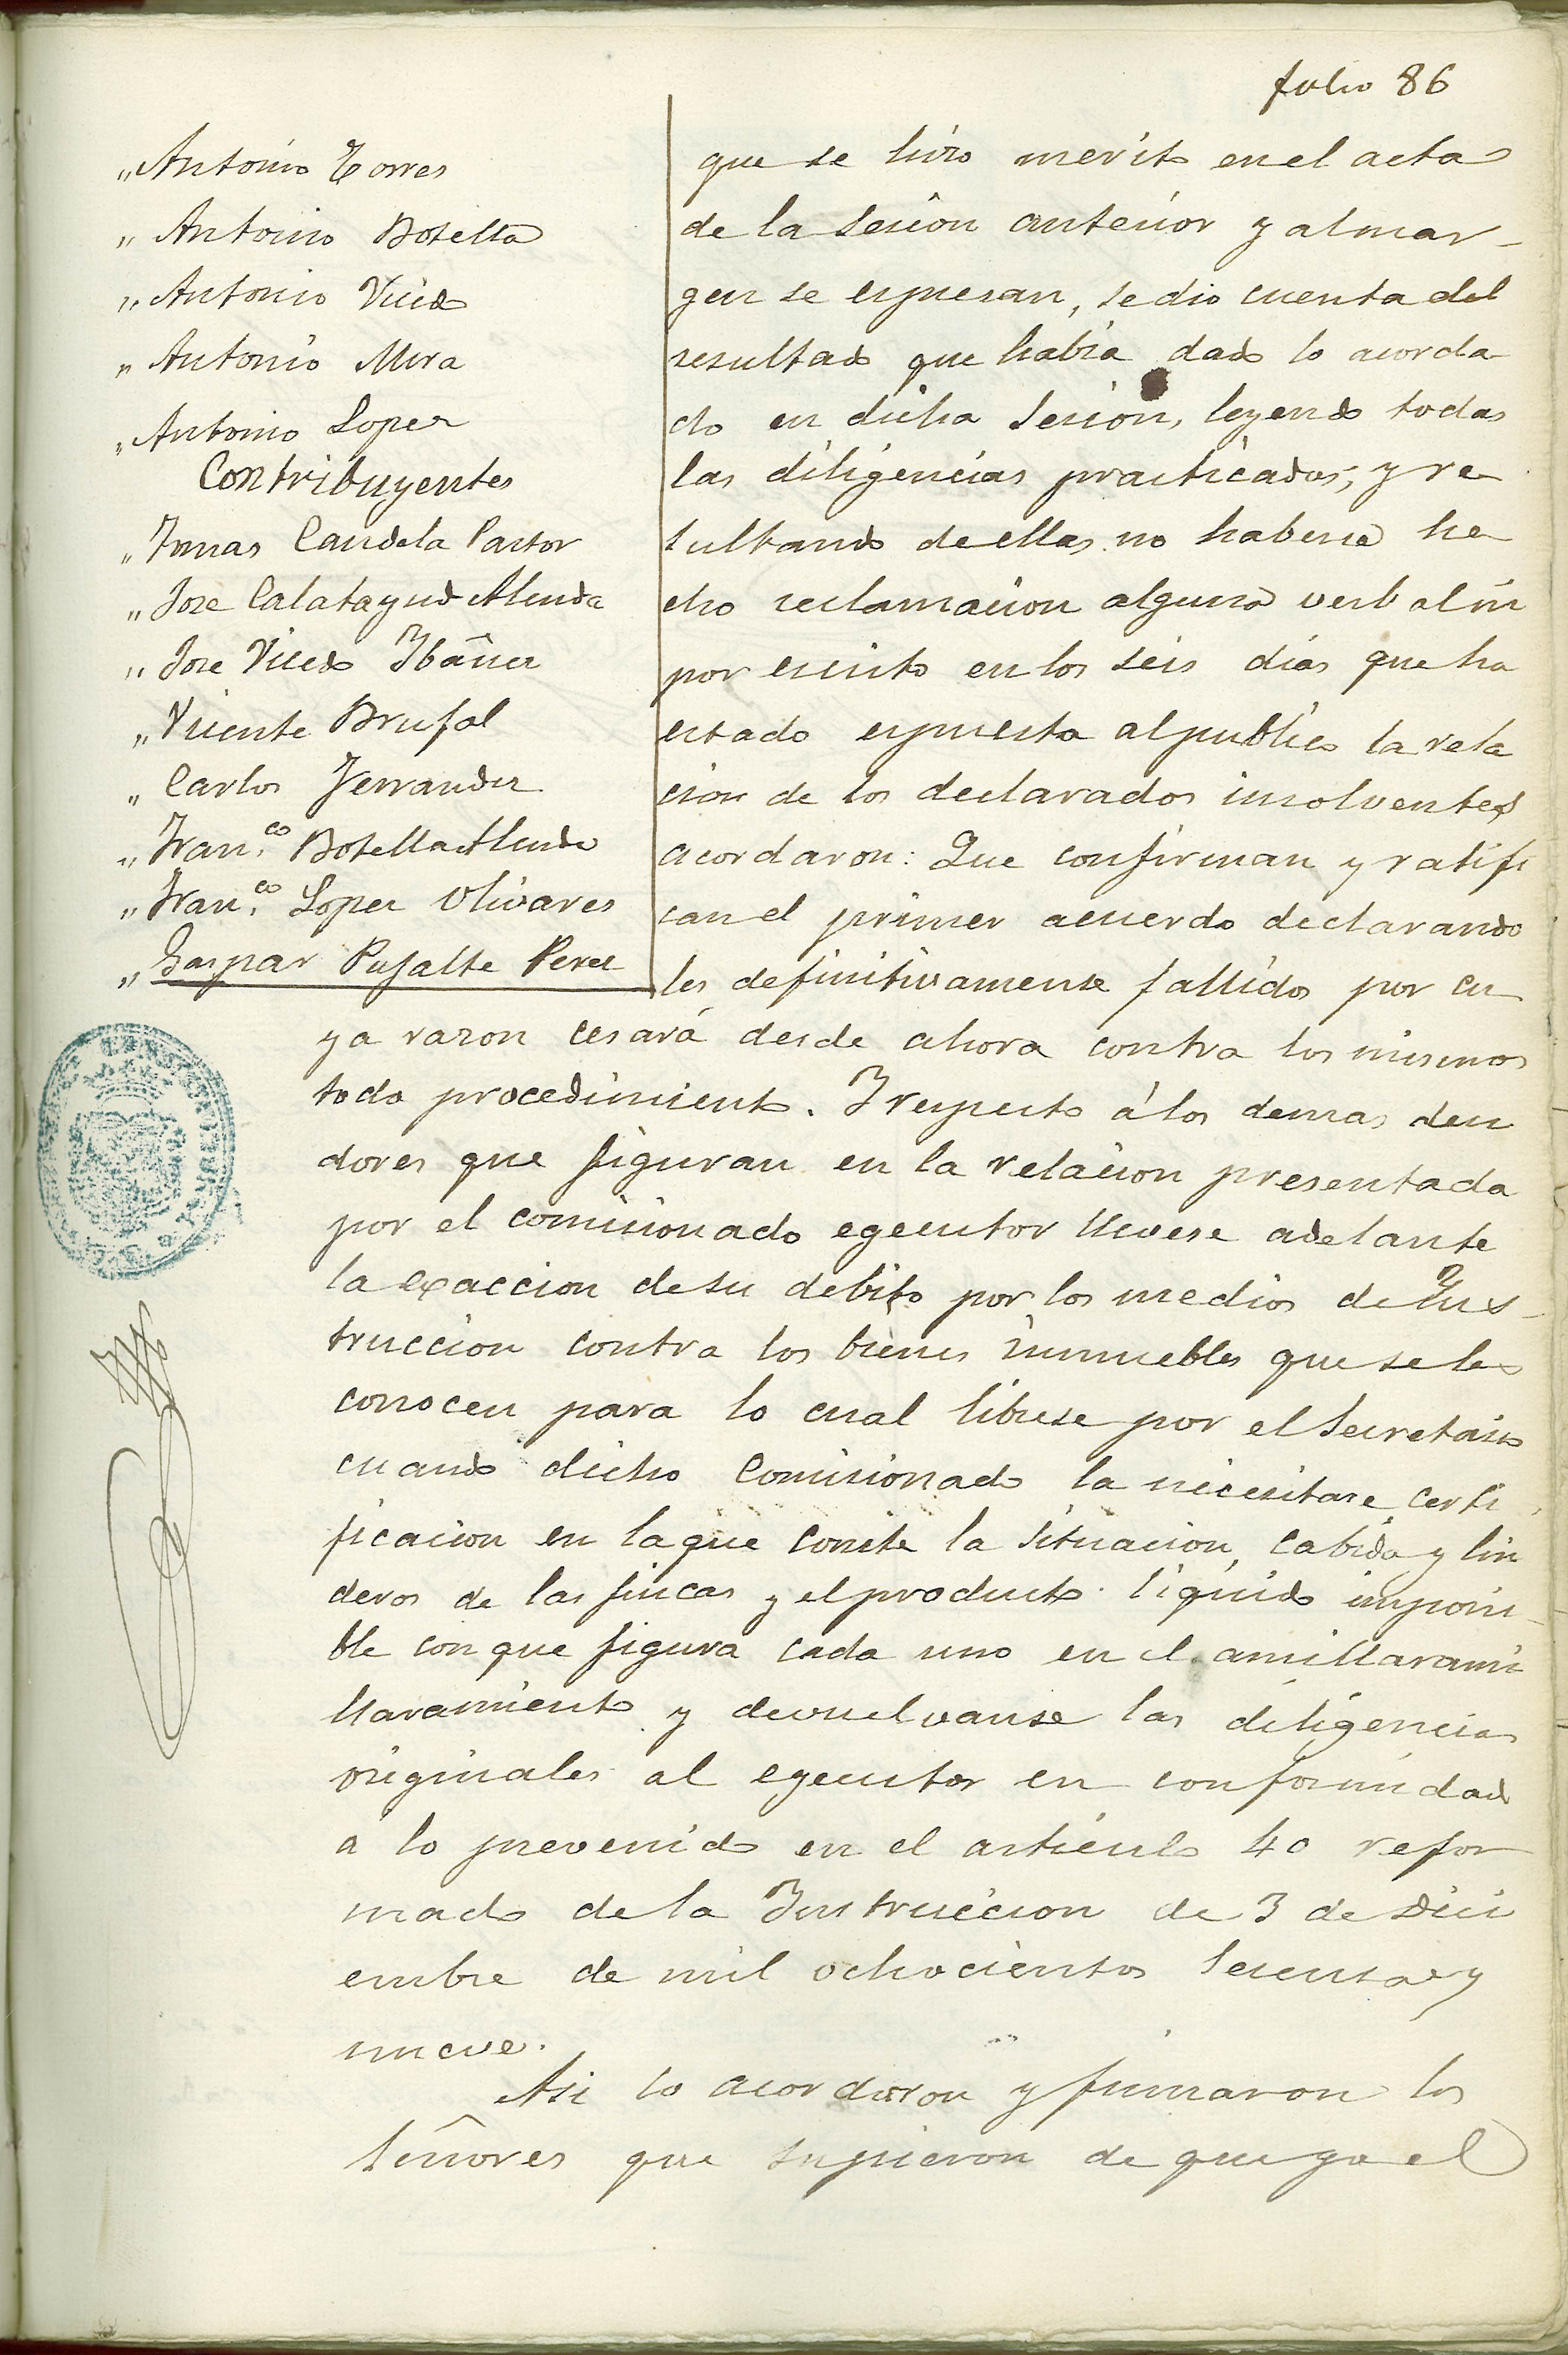 folio 86
„ Antonio Torres
„ Antonio Botella
„ Antonio Vicedo
„ Antonio Mira
„ Antonio Lopez
Contribuyentes
„ Tomas Candela Pastor
„ Jose Calatayud Alenda
„ Jose Vicedo Ibañez
„ Vicente Brufal
„ Carlos Ferrandez
„ Fran.co Botella Alenda
„ Fran.co Lopez Olivares
„ Gaspar Pujalte Perez
que se hizo merito en el acta
de la sesion anterior y al mar-
gen se espresan, se dio cuenta del
resultado que habia dado lo acorda
do en dicha sesion, leyendo todas
las diligencias practicadas; y re
sultando de ellas no haberse he
cho reclamacion alguna verbal ni
por escrito en los seis dias que ha
estado espuesta al publico la rela
cion de los declarados insolventes
acordaron: Que confirman y ratifi
can el primer acuerdo declarando
les definitivamente fallidos por cu
ya razon cesará desde ahora contra los mismos
todo procedimiento. Y respecto á los demas deu
dores que figuran en la relacion presentada
por el comisionado egecutor llevese adelante
la exaccion de su debito por los medios de Ins-
truccion contra los bienes inmuebles que se les
conocen para lo cual librese por el Secretario
cuando dicho Comisionado la necesitare, certi
ficacion en la que conste la situacion, cabida y lin
deros de las fincas y el producto liquido imponi-
ble con que figura cada uno en el amillarami
llaramiento y devuelvanse las diligencias
originales al egecutor en conformidad
a lo prevenido en el articulo 40 refor
mado de la Instruccion de 3 de Dici
embre de mil ochocientos sesenta y
nueve.
Asi lo acordaron y firmaron los
Señores que supieron de que yo el